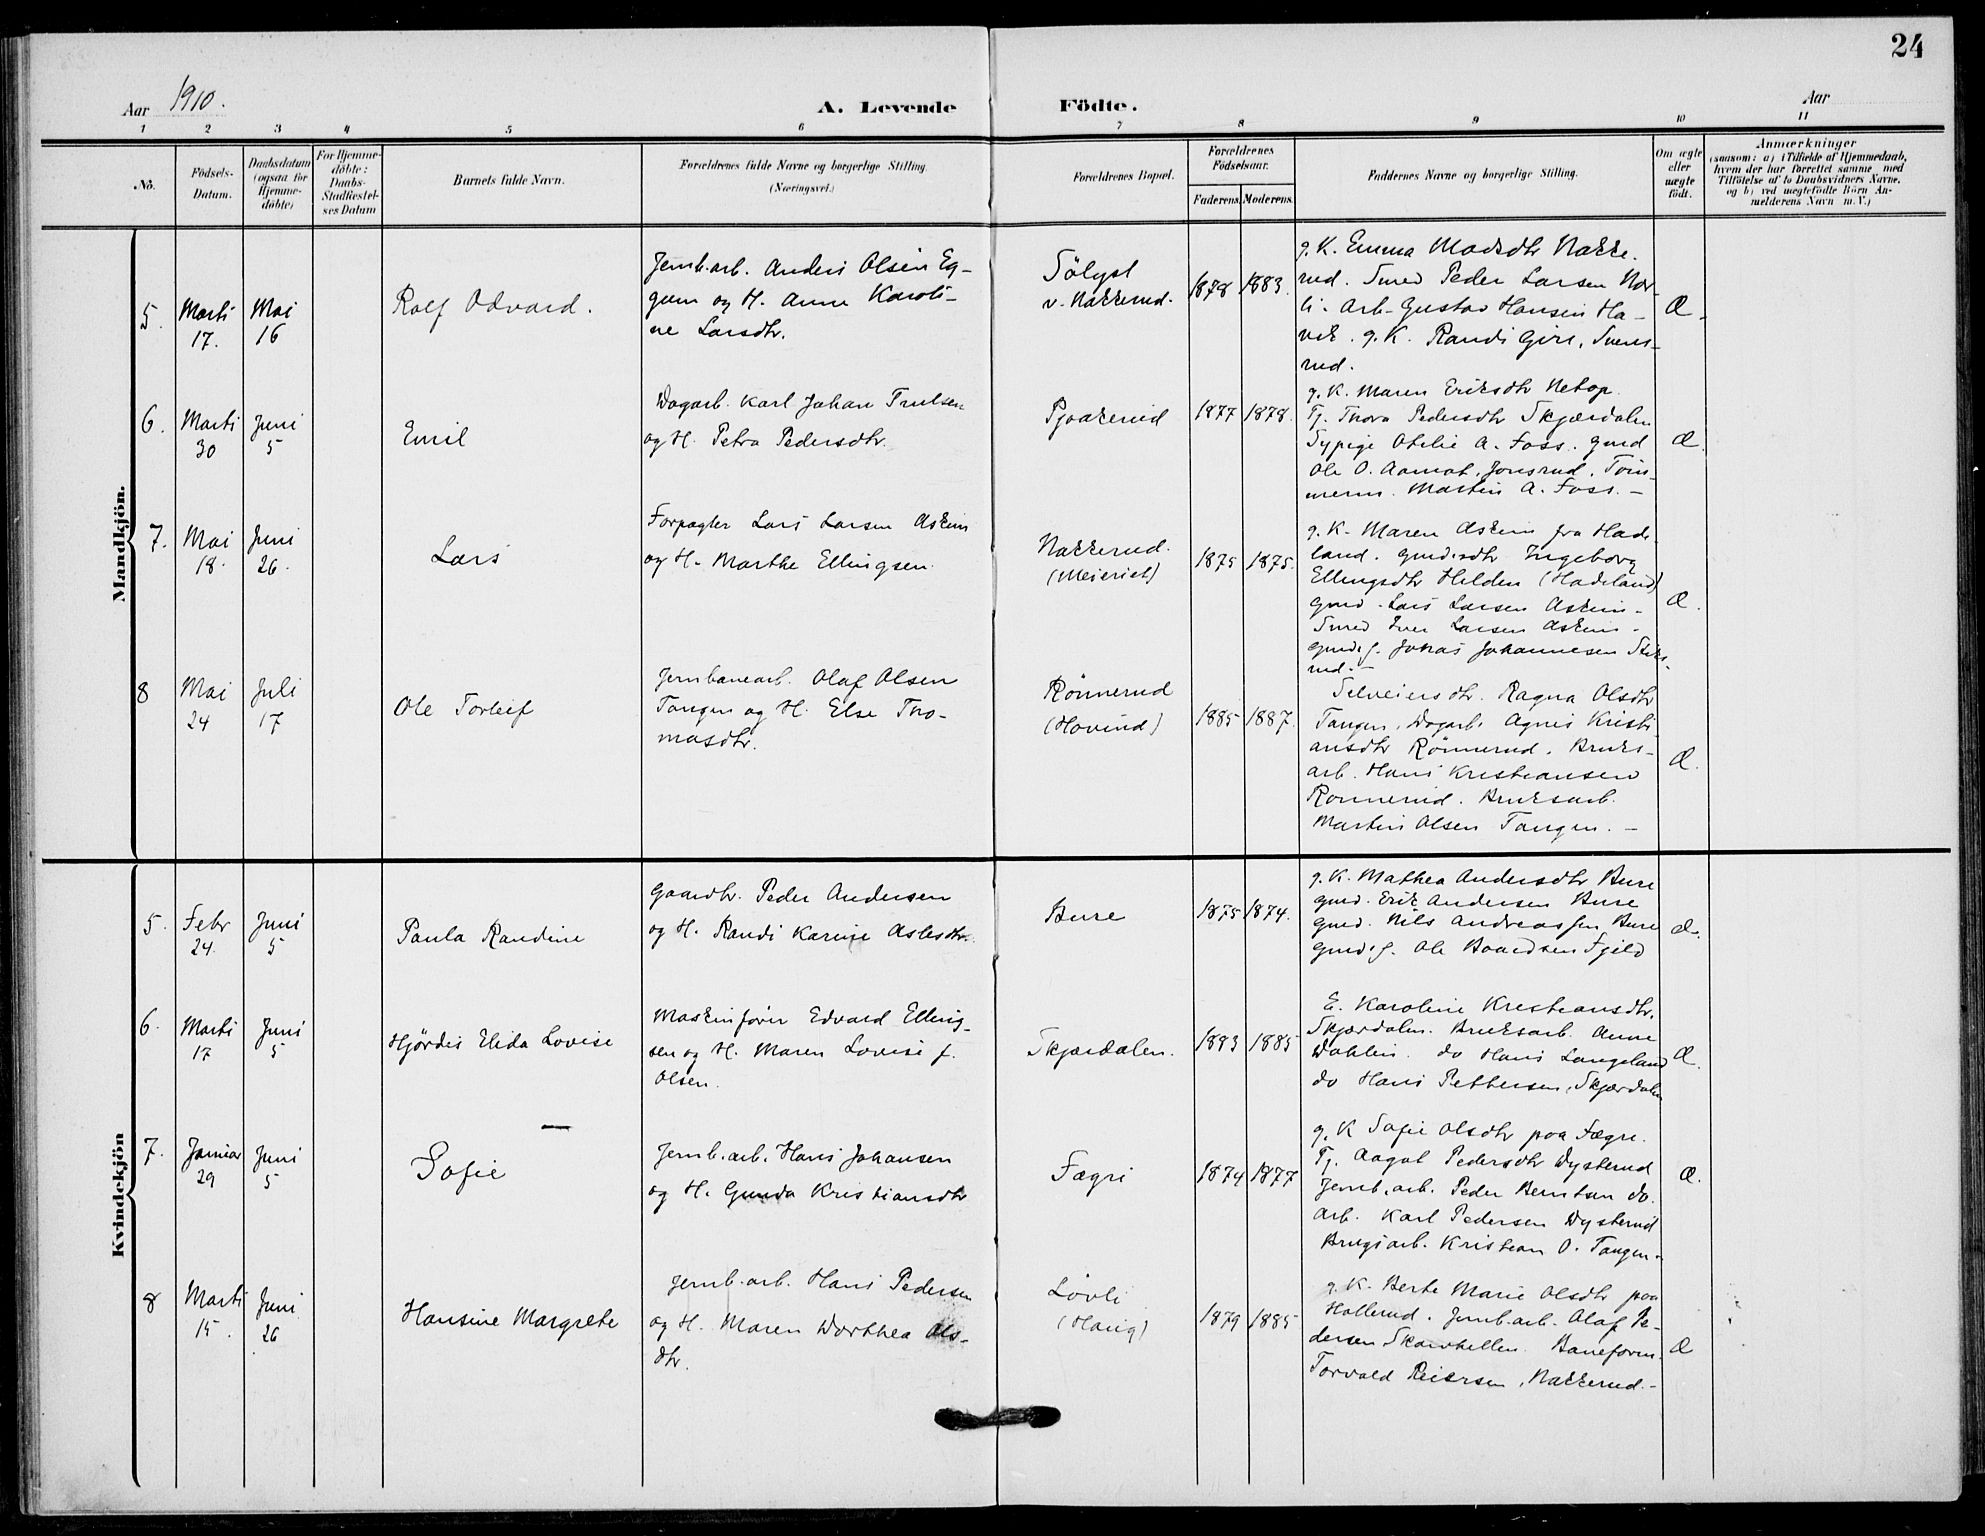 24
Aar 1910.
A. Levende Födte.
Aar
1 2 3 4 5 6 7 8 9 10 11
No.
Födsels-
Datum.
Daabsdatum
(ogsaa for
Hjemme-
döbte)
For Hjemme-
döbte:
Daabs-
Stadfæstel-
ses Datum
Barnets fulde Navn.
Forældrenes fulde Navne og borgerlige Stilling.
(Næringsvei.)
Forældrenes Bopæl.
Forældrenes
Födselsaar.
Faderens. Moderens.
Faddernes Navne og borgerlige Stilling.
Om ægte
eller
uægte
födt.
Anmærkninger
(saasom: a) i Tilfælde af Hjemmedaab,
hvem der har forrettet samme, med
Tilföielse af to Daabsvidners Navne,
og b) ved uegtefödte Börn An-
melderens Navn m. V.)
Mandkjön.
5.
Marti
17.
Mai
16
Rolf Odvard.
Jernb.arb. Anders Olsen Eg-
gum og H. Anne Karoli-
ne Larsdtr.
Sölyst
v. Nakkerud.
1878 1883.
g. K. Emma Madsdtr Nakke-
rud. Smed Peder Larsen Nor-
li. Arb. Gustav Hansen Ha-
vik. g. K. Randi Gire, Svens-
rud.
Æ.
6.
Marti
30
Juni
5
Emil
Dagarb. Karl Johan Trulsen
og H. Petra Pedersdtr.
Pjaakerud
1877 1878.
g. K. Maren Eriksdtr Retop.
Tj. Thora Pedersdtr Skjærdalen
Sypige Otelie A. Foss. gmd
Ole O. Aamot, Jonsrud. Töm-
merm. Martin A. Foss. –
Æ.
7.
Mai
18.
Juni
26.
Lars
Forpagter Lars Larsen Askim
og H. Marthe Ellingsen.
Nakkerud.
(Meieriet)
1875 1875.
g. K. Maren Askim fra Hade-
land. gmdsdtr Ingeborg
Ellingsdtr Helden (Hadeland)
gmd. Lars Larsen Askim.
Smed Iver Larsen Askim.
gmds. Johas Johannesen Stiks-
rud. –
Æ.
8
Mai
24
Juli
17
Ole Torleif
Jernbanearb. Olaf Olsen
Tangen og H. Else Tho-
masdtr.
Rönnerud
(Hovind)
1885 1887.
Selveiersdtr. Ragna Olsdtr
Tangen, Dagarb. Agnes Kristi-
ansdtr Rönnerud. Bruks-
arb. Hans Kristiansen
Rönnerud. Bruksarb.
Martin Olsen Tangen. –
Æ.
Kvindekjön
5.
Febr
24.
Juni
5
Paula Randine
Gaardbr. Peder Andersen
og H. Randi Karine Aslesdtr.
Bure
1875 1874.
g. K. Mathea Andersdtr Bure
gmd. Erik Andersen Bure
gmd. Nils Andreassen Bure
gmds. Ole Baardsen Fjeld
Æ.
6.
Marti
17
Juni
5
Hjördis Elida Lovise
Maskinförer Edvard Elling-
sen og H. Maren Lovise f.
Olsen.
Skjærdalen.
1883 1885
E. Karoline Kristiansdtr,
Skjærdalen. Bruksarb. Anne
Dahlin. do Hans Langeland
do Hans Pettersen, Skjærdalen
Æ.
7.
Januar
29
Juni
5
Sofie
Jernb.arb. Hans Johansen
og H. Gunda Kristiansdtr
Fægri
1874 1877
g. K Sofie Olsdtr paa Fægri.
Tj. Aagot Pedersdtr Dysterud
Jernb.arb. Peder Berntsen do.
Arb. Karl Pedersen Dysterud
Brugsarb. Kristian O. Tangen.
Æ.
8
Marti
15.
Juni
26
Hansine Margrete
Jernb.arb. Hans Pedersen
og H. Maren Dorthea Ols-
dtr.
Lövli
(Harig)
1879 1885
g. K. Berte Marie Olsdtr paa
Hollerud. Jernb.arb. Olaf Pe-
dersen Skarshellen. Baneform.
Torvald Reiersen, Nakkerud. –
Æ